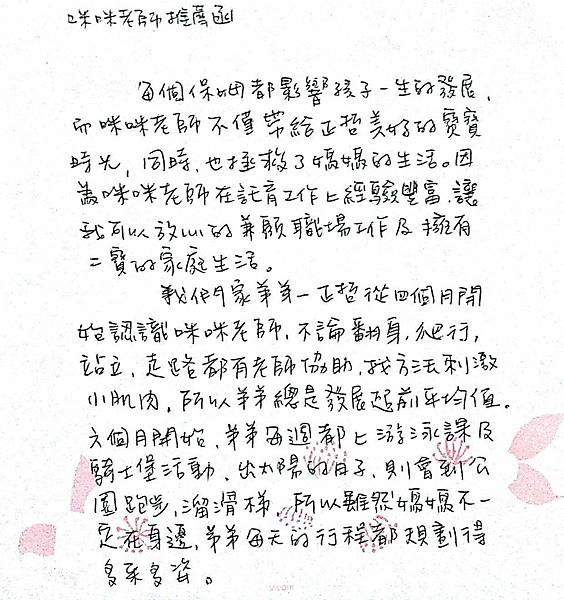 咪咪老師推薦函
每個保姆都影響孩子一生的發展，
而咪咪老師不僅帶給正哲美好的寶寶
時光，同時，也拯救了媽媽的生活。因
為咪咪老師在託育工作上經驗豐富，讓
我可以放心的兼顧職場工作及擁有
二寶的家庭生活。
我們家弟弟－正哲從四個月開
始認識咪咪老師，不論翻身，爬行，
站立，走路都有老師協助，找方法刺激
小肌肉，所以弟弟總是發展超前平均值。
六個月開始，弟弟每週都上游泳課及
騎士堡活動，出太陽的日子，則會到公
園跑步，溜滑梯，所以雖然媽媽不一
定在身邊，弟弟每天的行程都規劃得
多采多姿。